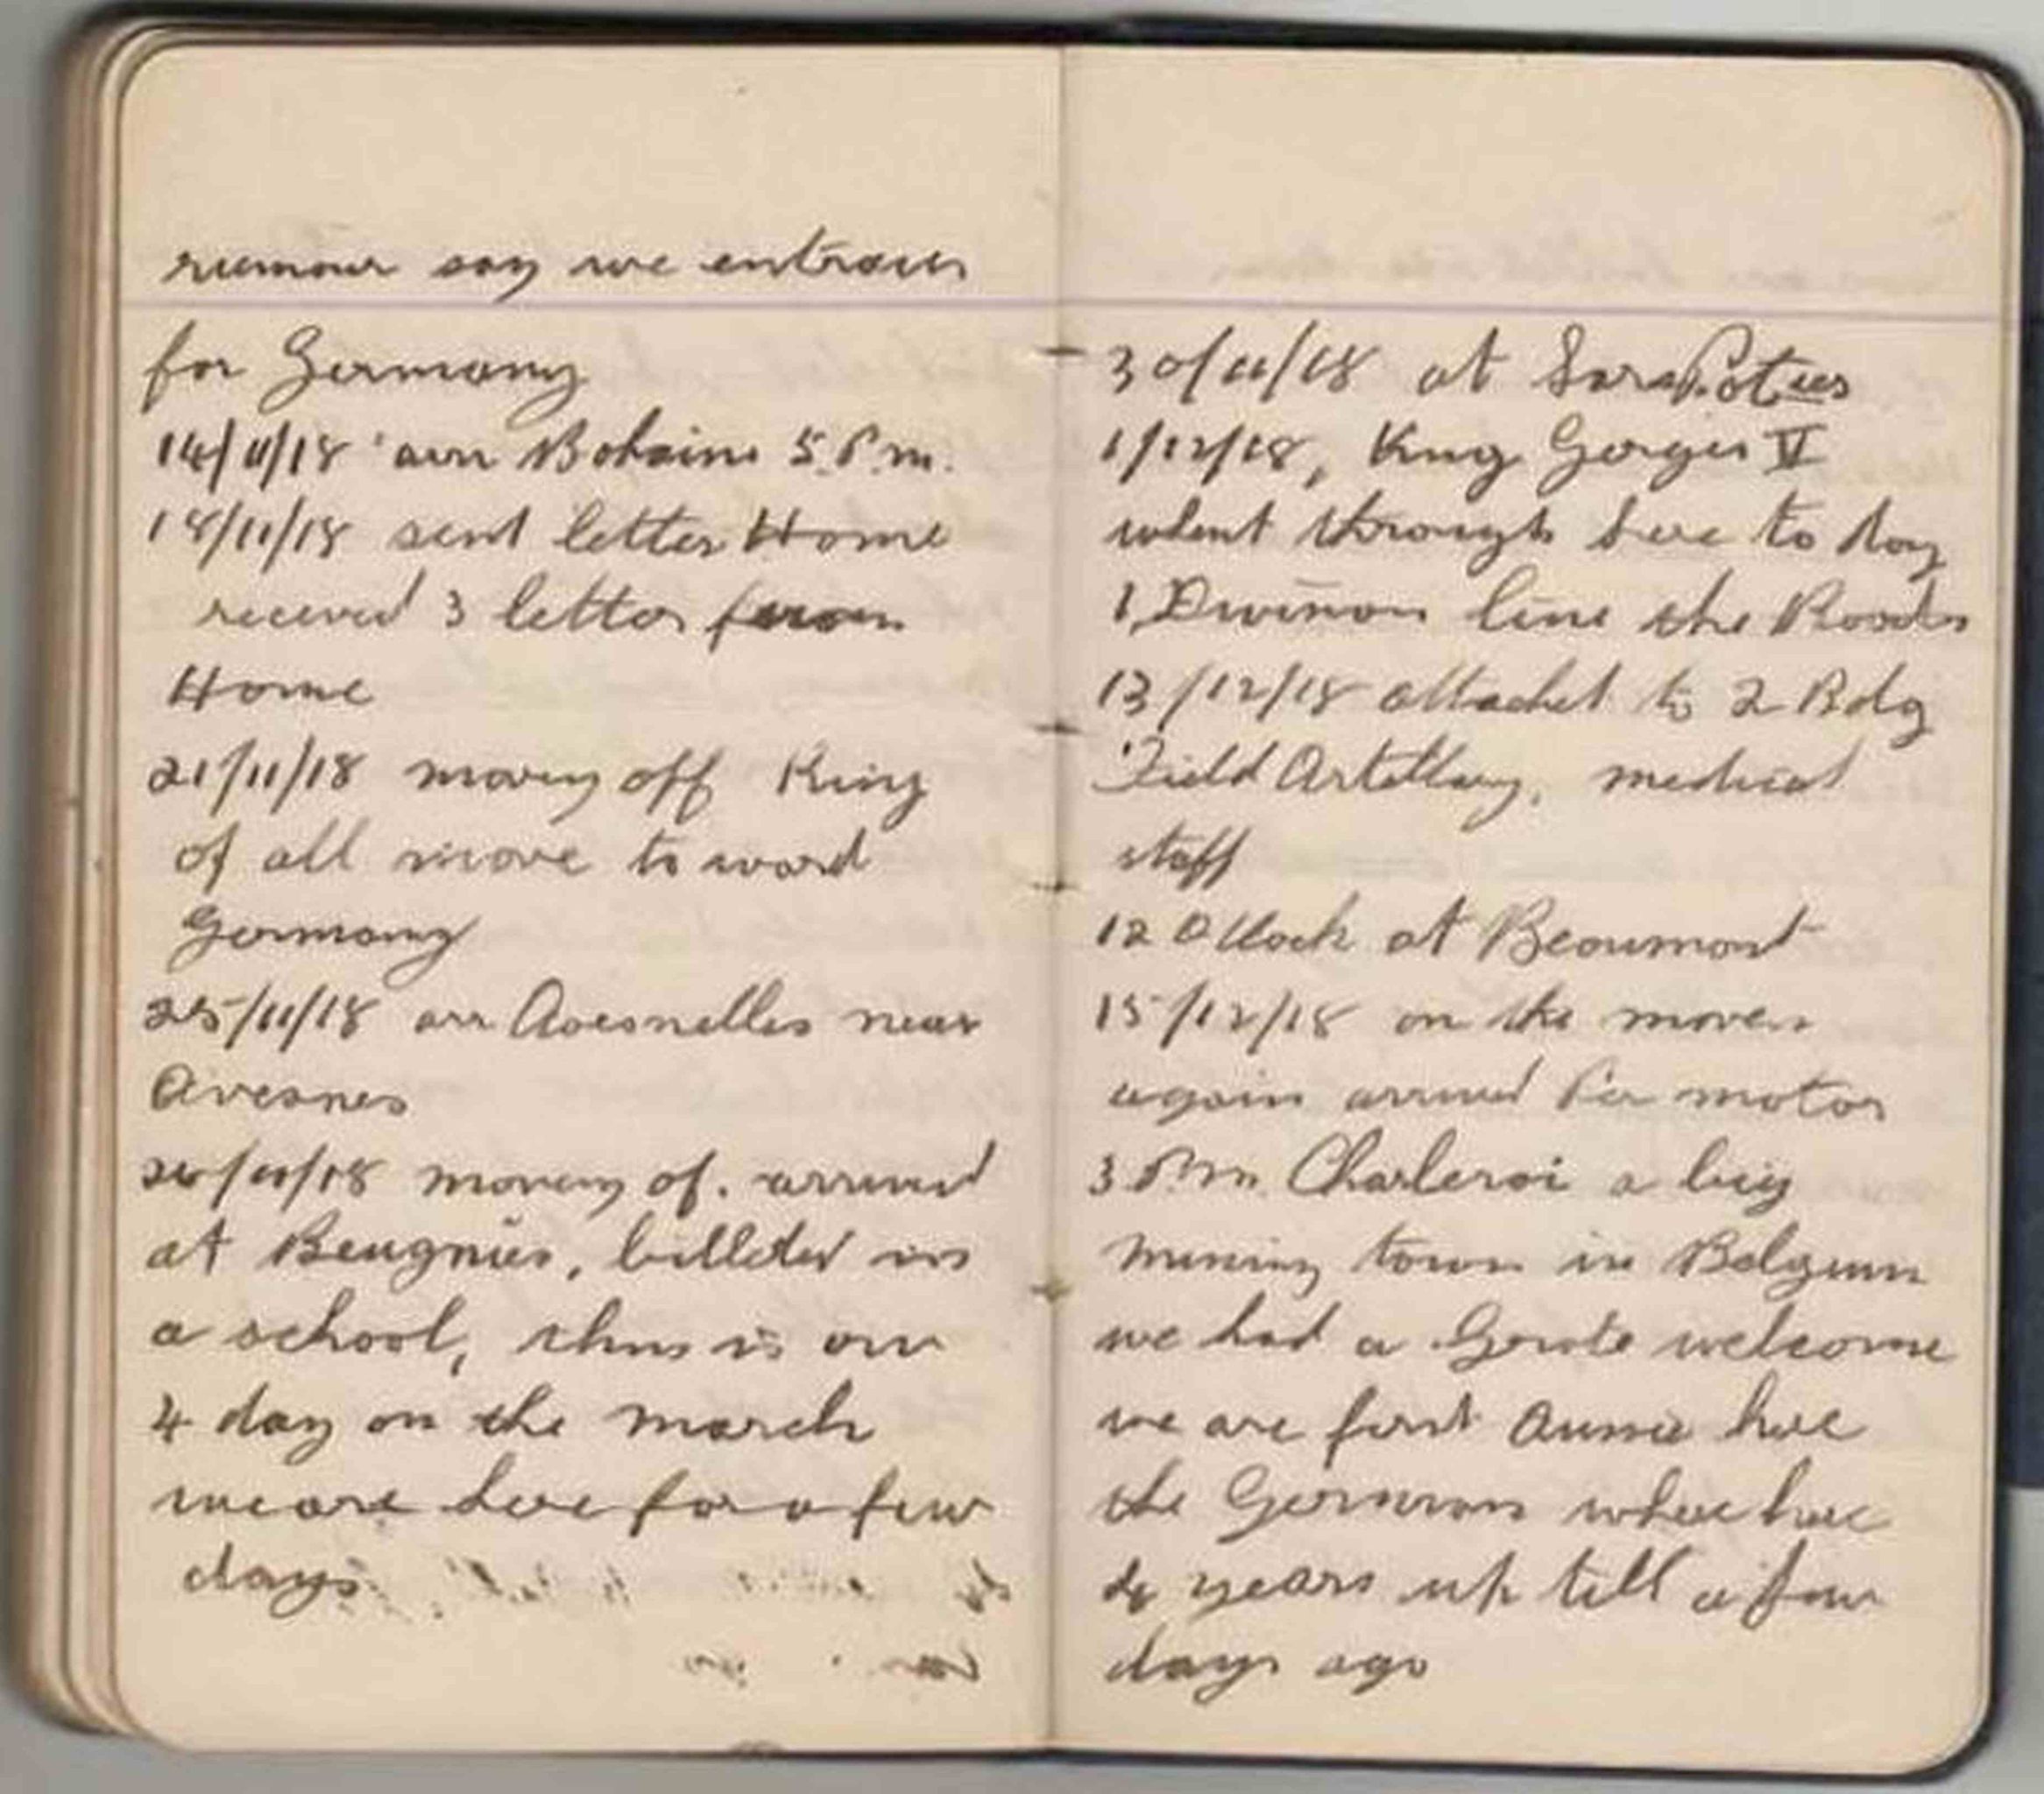 rumour say we entrain
for Germany
14/11/18 arr Bohain 5 P.m.
18/11/18 sent letter Home
received 3 letter from
Home
21/11/18 moving off King
of all move to ward
Germany
25/11/18 arr Avesnelles near
Avesnes
26/11/18 moveing of. arrived
at Beugnies, billeted in
a school, this is our
4 day on the march
we are here for a few
days
30/11/18 at Sars Poteries
1/12/18, King Gorges V
whent through here to day
1 Division line the Roads
13/12/18 attachet to 2 Bdg
Field Artillary, medical
staff
12 O Clock at Beaumont
15/12/18 on the move
again arrived Per motor
3 P.m. Charleroi a big
mining town in Belgium
we had a Grate welcome
we are first Aussie here
the Germans where here
4 years up till a few
days ago